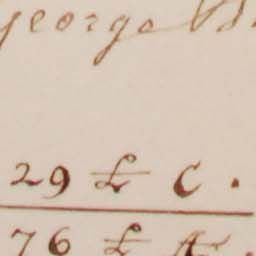 George
29 £ C.
76 £ A